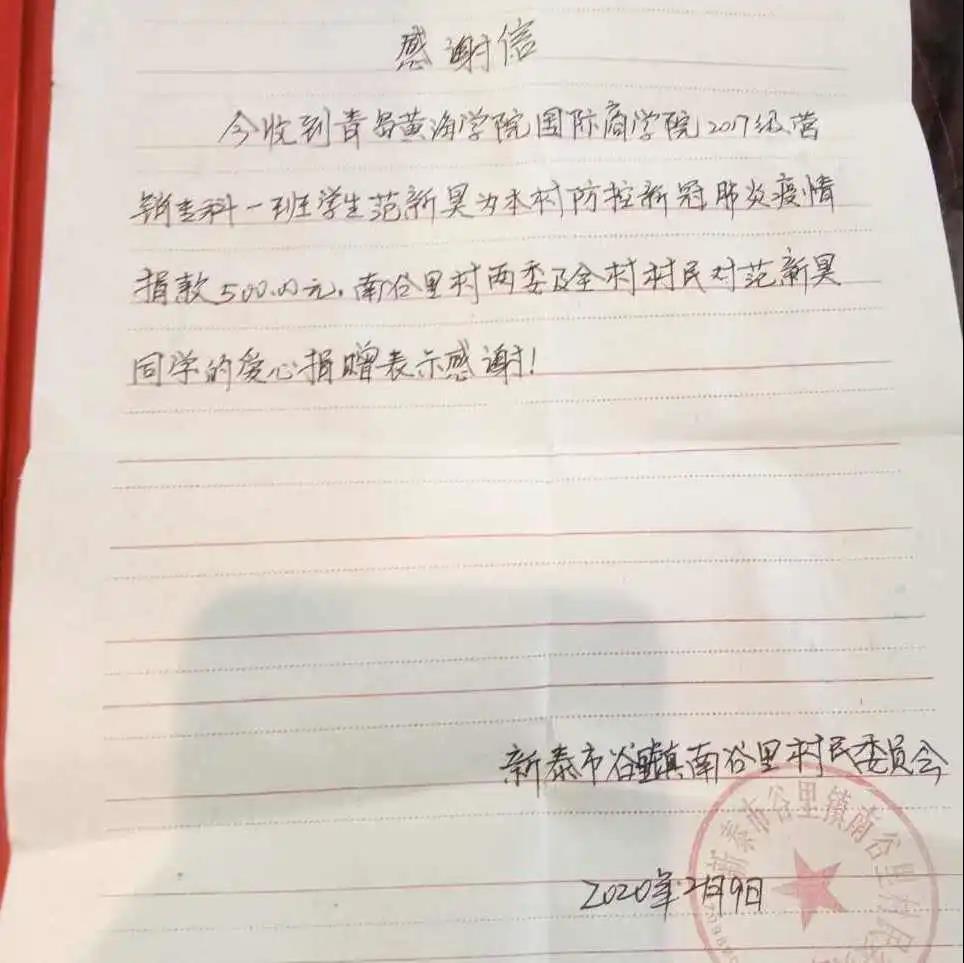 感谢信
今收到青岛黄海学院国际商学院2017级营
销专科一班学生范新昊为本村防控新冠肺炎疫情
捐款500.00元，南谷里村两委及全村村民对范新昊
同学的爱心捐赠表示感谢！
新泰市谷里镇南谷里村民委员会
新泰市谷里镇南谷里村民
2020年2月9日